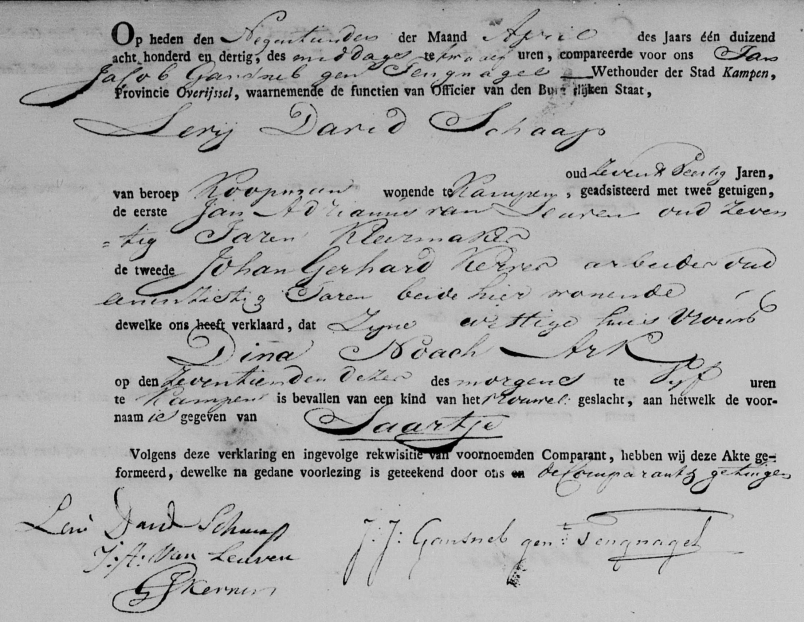 Op heden den Negentienden der Maand April des Jaars één duizend
acht honderd en dertig, des middags te twaalf uren, compareerde voor ons Jan
Jacob Gantneb gen Tengnagel Wethouder der Stad Kampen,
Provincie Overijssel, waarnemende de functien van Officier van den Burgerlijken Staat,
Levij David Schaap
oud Jaren,
van beroep Koopman wonende te Kampen, geadsisteerd met twee getuigen,
de eerste Jan Adrianus van Leuven oud Zeven
=tig Jaren Kleermaker
de tweede Johan Gerhard Kerner arbeider oud
Jaren beide hier wonende
dewelke ons heeft verklaard, dat Zyne wettige huis vrouw
Dina Noach Ark
op den Zeventienden dezer des morgens te vyf uren
te Kampen is bevallen van een kind van het vrouwel: geslacht, aan hetwelk de voor-
naam is gegeven van Saartje
Volgens deze verklaring en ingevolge rekwisitie van voornoemden Comparant, hebben wij deze Akte ge-
formeerd, dewelke na gedane voorlezing is geteekend door ons en de Comparant & getuigen
Levi David Schaap
J. A. van Leuven
J: J: Gantneb gen: Tengnagel
G Kerner